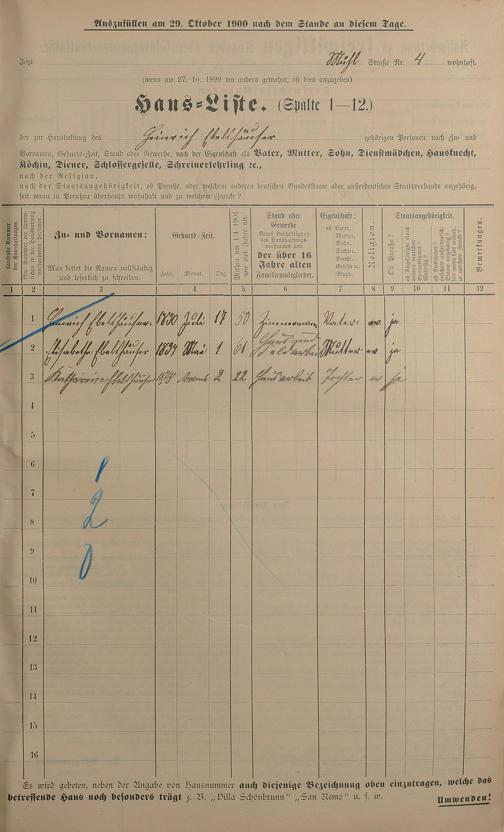 Auszufüllen am 29. Oktober 1900 nach dem Stande an diesem Tage.
Jetzt Mühl Straße Nr. 4 wohnhaft.
(wenn am 27. 10. 1899 wo anders gewohnt, ist dies anzugeben)
Haus=Liste. (Spalte 1—12.)
der zur Haushaltung des Heinrich Ebelshäuser gehörigen Personen nach Zu= und
Vornamen, Geburts=Zeit, Stand oder Gewerbe, nach der Eigenschaft als Vater, Mutter, Sohn, Dienstmädchen, Hausknecht,
Köchin, Diener, Schlossergeselle, Schreinerlehrling ꝛc.,
nach der Religion,
nach der Staatsangehörigkeit, ob Preuße, oder welchem anderen deutschen Bundesstaate oder außerdeutschen Staatsverbande angehörig,
seit wann in Preußen überhaupt wohnhaft und zu welchem Zwecke?
Zu= und Vornamen:
Man bittet die Namen vollständig
und leserlich zu schreiben.
Geburts=Zeit.
Jahr. Monat. Tag.
Stand oder
Gewerbe
der über 16
Jahre alten
Familienmitglieder.
Eigenschaft:
ob Vater,
Mutter,
Sohn,
Tochter,
Knecht,
Geselle rc.
Magd.
Religion.
Staatsangehörigkeit.
Ob Preuße?
Bemerkungen.
1 2 3 4 5 6 7 8 9 10 11 12
1 Heinrich Ebelshäuser 17 Zimmermann Vater ev ja
2 Elisabetha Ebelshäuser Mai 1 61 Mutter ev ja
3 Katharine Ebelshäuser 2 22 Handarbeit Tochter ev ja
4
5
6
7
8
9
10
11
12
13
14
15
16
1
2
0
Es wird gebeten, neben der Angabe von Hausnummer auch diejenige Bezeichnung oben einzutragen, welche das
betreffende Haus noch besonders trägt z. B. „Villa Schönbrunn" „San Remo" u. s. w. Umwenden!